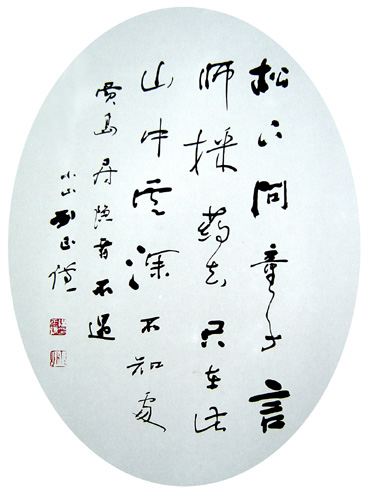 松下问童子言
师採药去只在此
山中云深不知處
贾岛寻隐者不遇
小山